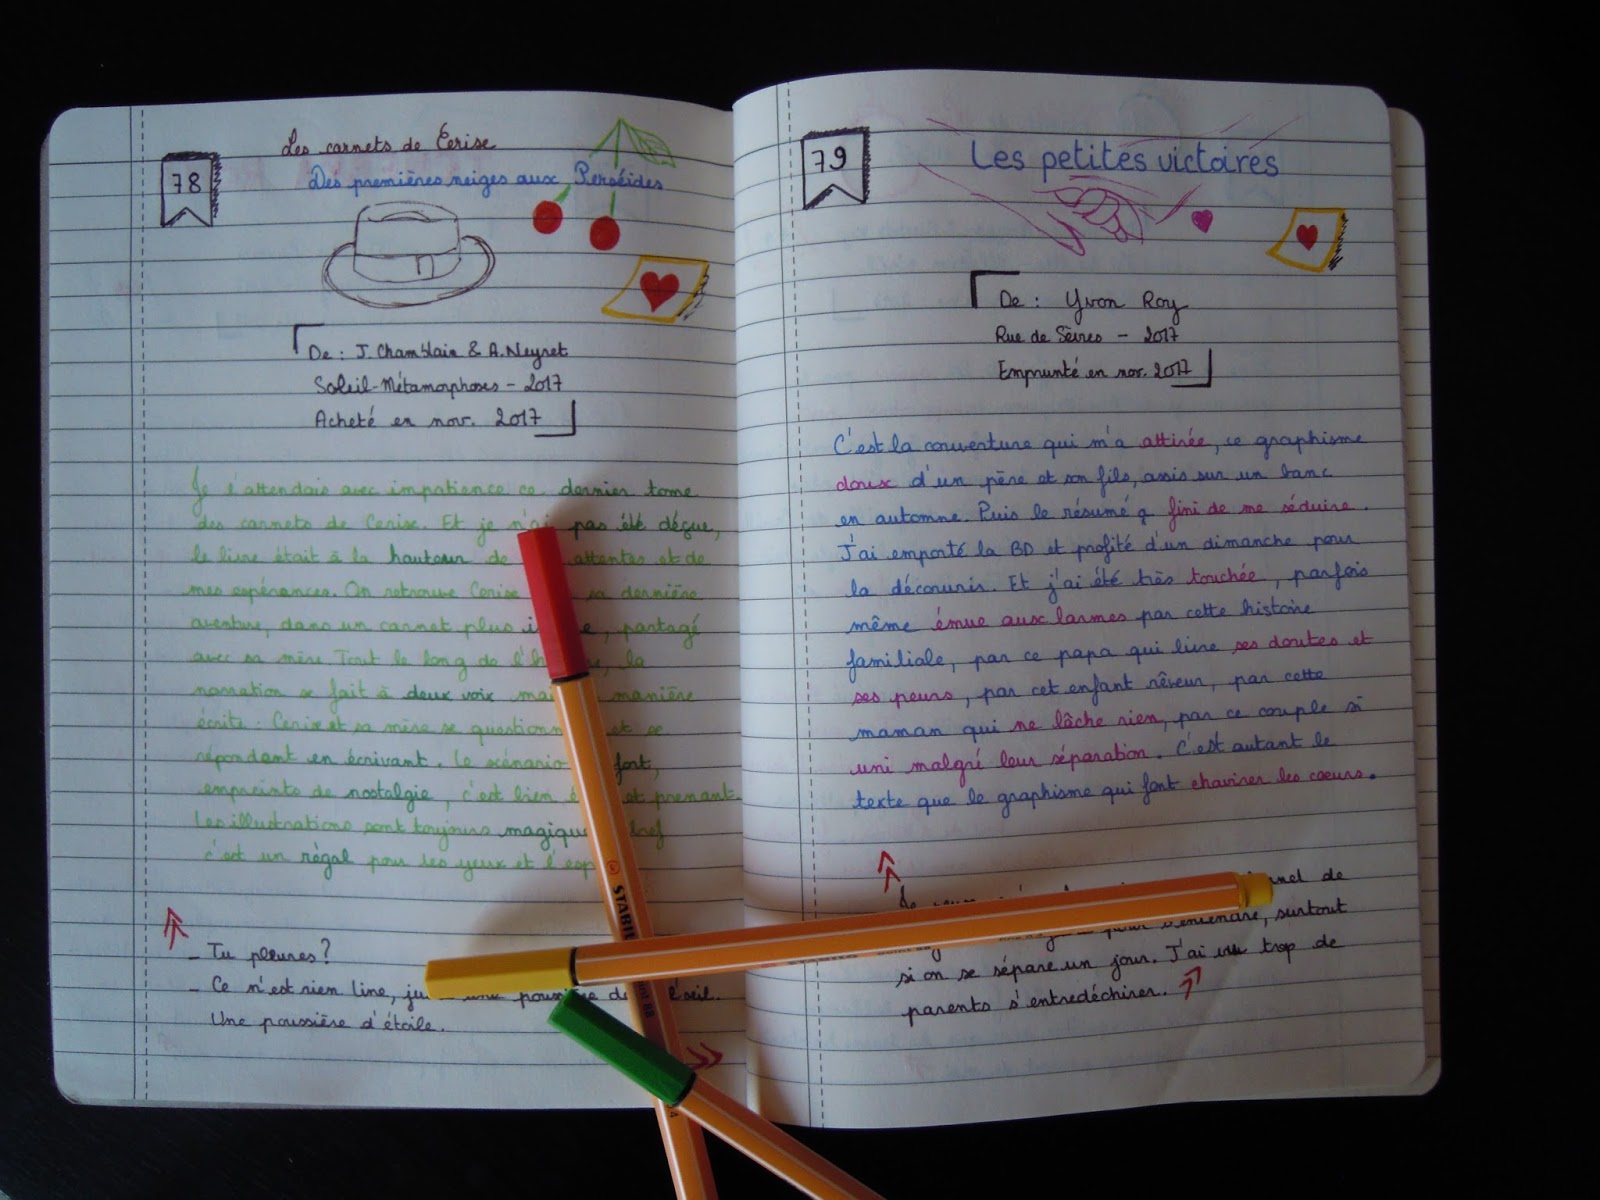 78
Les carnets de Cerise
Des premières neiges aux Perséides
De : J. Chamblain & A. Neyret
Soleil-Métamorphoses - 2017
Acheté en nov. 2017
Je l'attendais avec impatience ce dernier tome
des carnets de Cerise. Et je n'ai pas été déçue,
le livre était à la hauteur de attentes et de
mes espérances. On retrouve Cerise sa dernière
aventure, dans un carnet plus partagé
avec sa mère. Tout le long de la
narration se fait à deux voix manière
écrite : Cerise et sa mère se et se
répondent en écrivant. Le scénario fort,
empreinte de nostalgie, c'est bien et prenant.
Les illustrations sont toujours
c'est un régal pour les yeux et
- Tu pleures ?
- Ce n'est rien Line, poussière l'œil.
Une poussière d'étoile.
79
Les petites victoires
De : Yvon Roy
Rue de Sèvres - 2017
Emprunté en nov. 2017
C'est la couverture qui m'a attirée, ce graphisme
doux d'un père et son fils, assis sur un banc
en automne. Puis le résumé a fini de me séduire.
J'ai emporté la BD et profité d'un dimanche pour
la découvrir. Et j'ai été très touchée, parfois
même émue aux larmes par cette histoire
familiale, par ce papa qui livre ses doutes et
ses peurs, par cet enfant rêveur, par cette
maman qui ne lâche rien, par ce couple si
uni malgré leur séparation. C'est autant le
texte que le graphisme qui font chavirer les cœurs.
de
s'entendre, surtout
si on se sépare un jour. J'ai vu trop de
parents s'entredéchirer.
STABILO
point 88